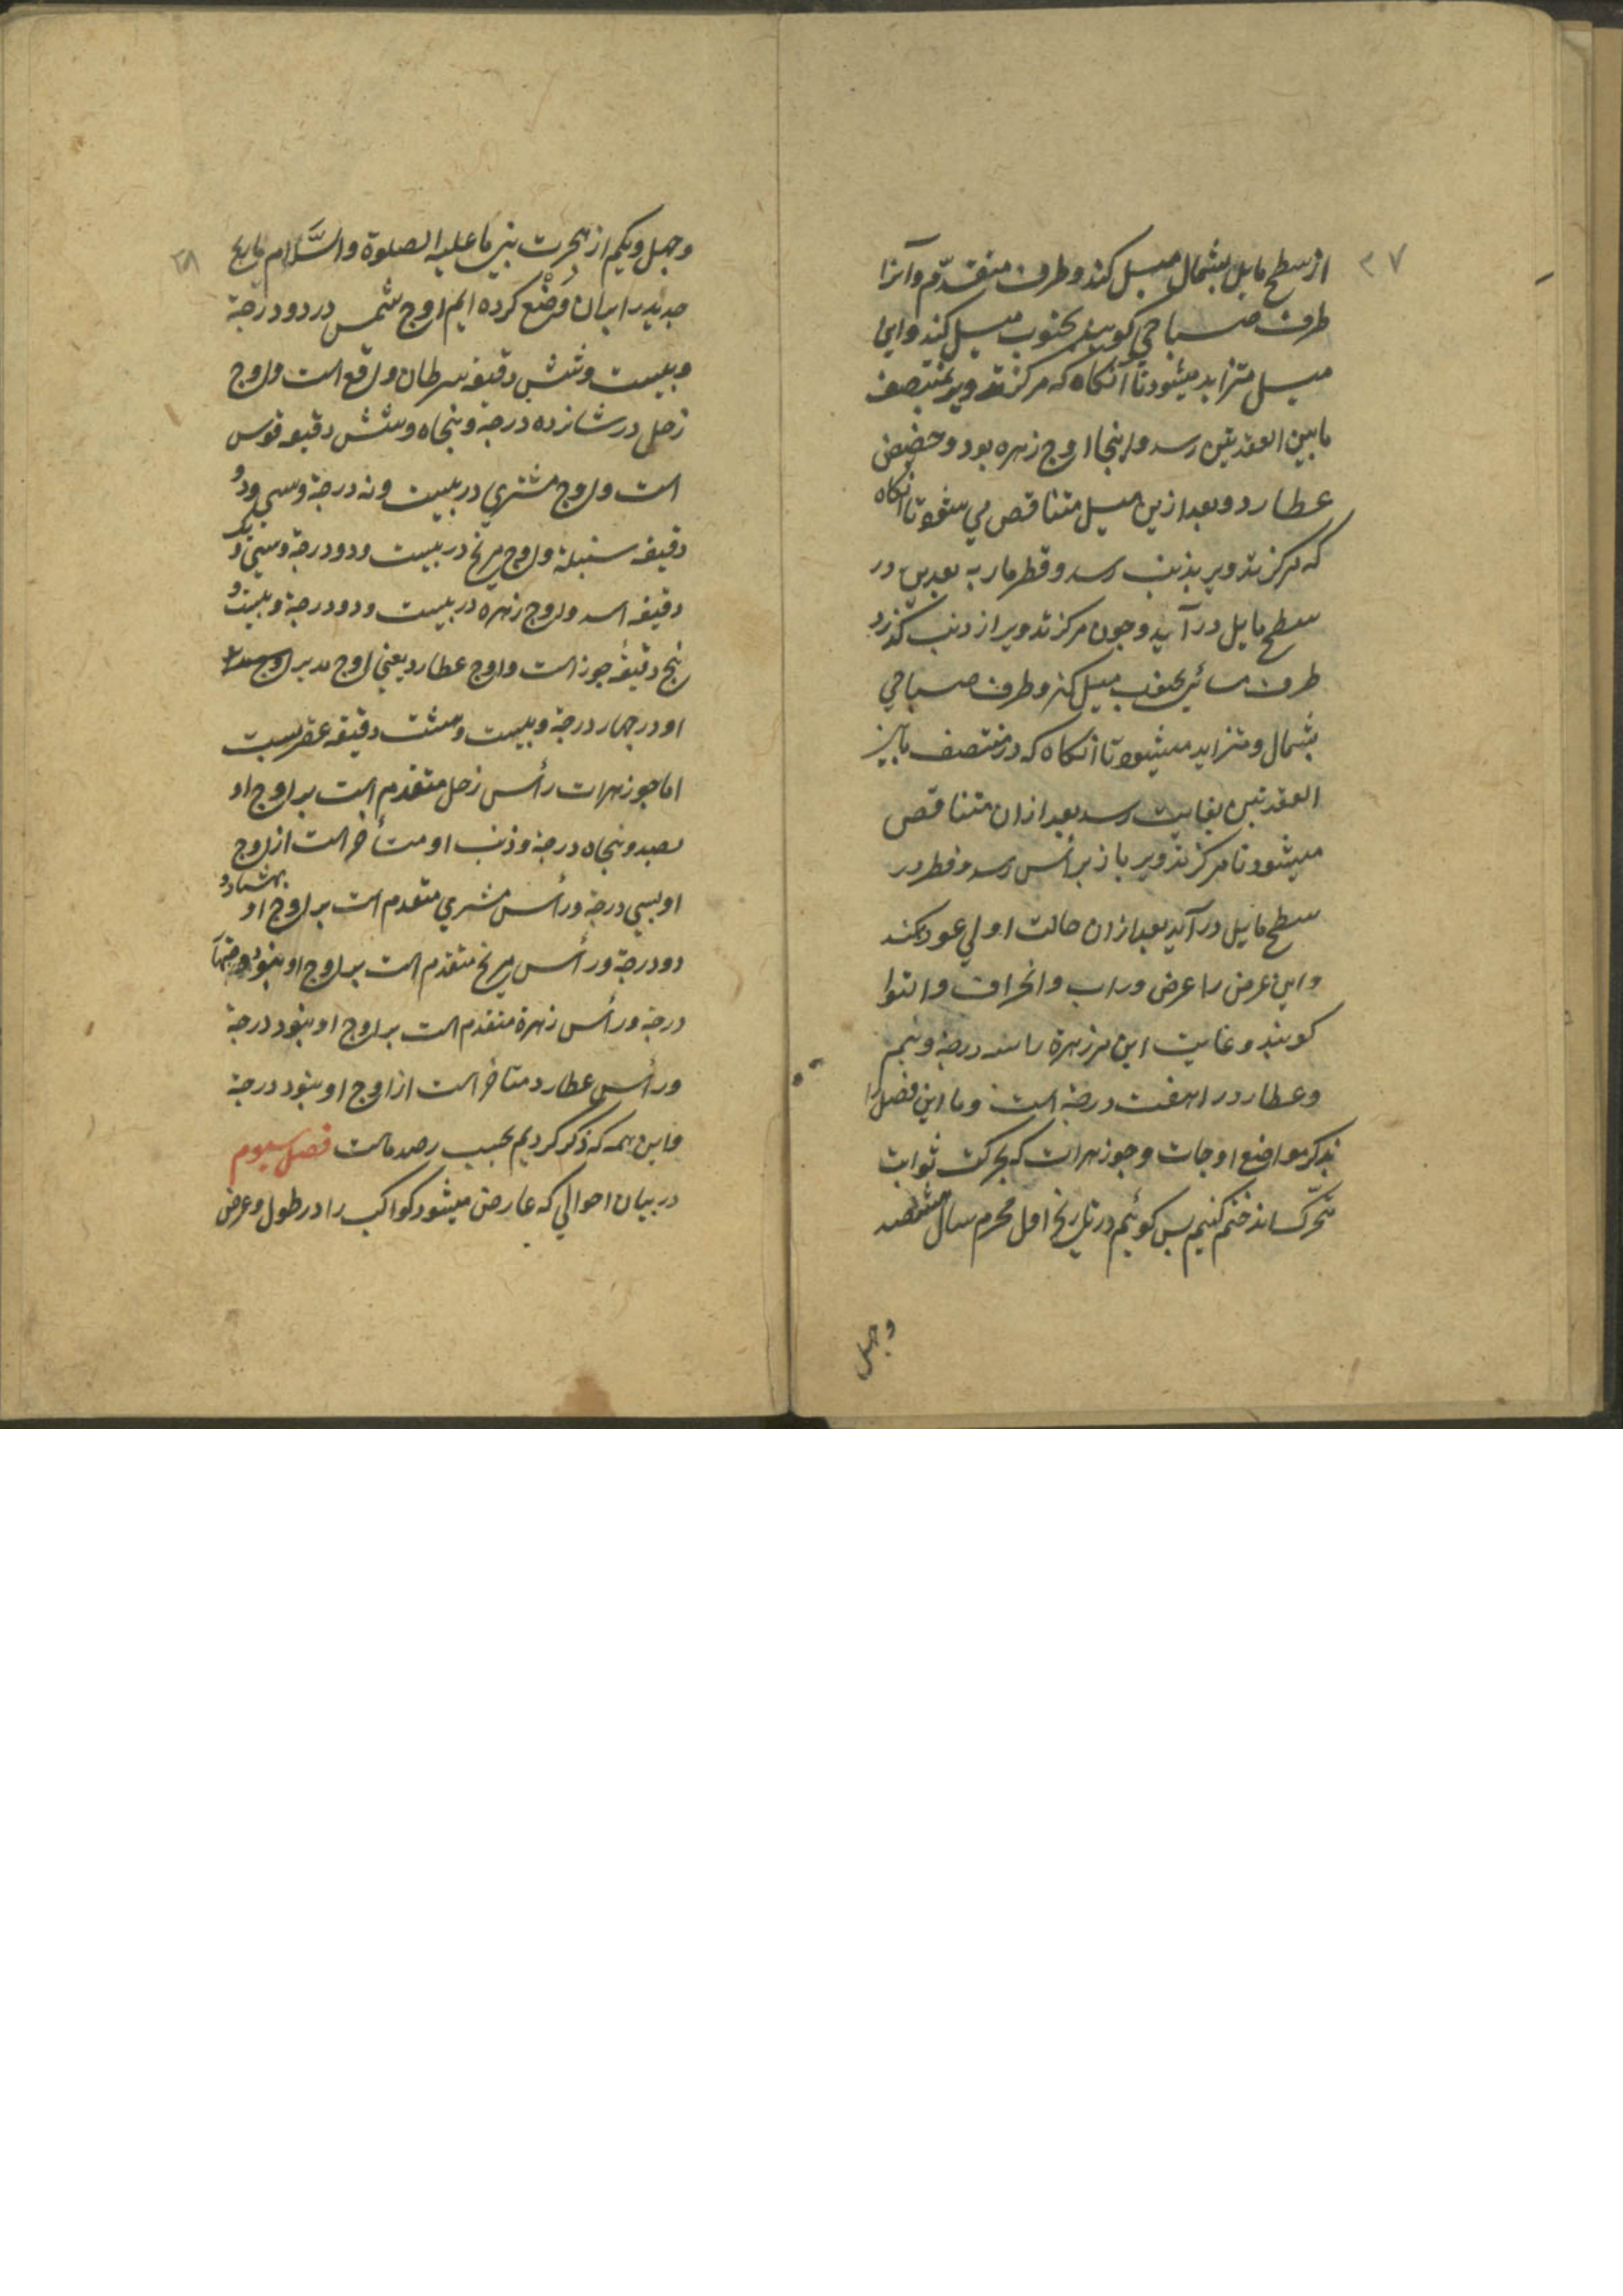 ۳۷
از سطح مایل بشمال میل کند و طرف متقدّم و آنرا
طرف صباحی کویند بجنوب میل کند و این
میل متزاید میشود تا آنکاه که مرکز تدویر بمنتصف
مابین العقدیتن رسد و اینجا اوج زهره بود و حضیض
عطارد و بعد ازین میل متناقص می شود تا انکاه
که مرکز تدویر بذنب رسد و قطر مار به بعدین در
سطح مایل در آید و چون مرکز تدویر از ذنب کذرد
طرف مسائی بجنوب میل کند و طرف صباحی
بشمال و متزاید میشود تا انکاه که در منتصف مابین
العقدتین بغایت رسد بعد ازان متناقص
میشود تا مرکز تدویر باز برأس رسد و قطر در
سطح مایل در آید بعد ازان حالت اولی عود کند
و این عرض را عرض وراب و انحراف و التوا
کویند و غایت این مر زهرة را سه درجه و نیم
و عطارد را هفت درجه است و ما این فصل را
بذکر مواضع اوجات و جوزهرات که بحرکت ثوابت
متحرّک اند ختم کنیم پس کوئیم در تاریخ اول محرم سال هشتصد
وچهل
۳۸
وچهل ویکم از هجرت نبی ما علیه الصلوة والسَّلام تاریخ
جدید را بران وَضْع کرده ایم اوج شمس در دو درجة
و بیست و شش دقیقه سرطان واقع است و اوج
زحل در شانزده درجة و پنجاه و شش دقیقه قوس
است و اوج مشتری در بیست و نه درجة و سی و دو
دقیقه سنبلة و اوج مریخ در بیست و دو درجة و سی و یک
دقیقه اسد و اوج زهره در بیست و دو درجة و بیست و
پنج دقیقهٔ جوزاست و اوج عطارد یعنی اوج مدیر
او در چهار درجة و بیست و هشت دقیقه عقربست
اما جوزهرات رأس زحل متقدم است بر اوج او
بصد و پنجاه درجة و ذنب او متأخر است از اوج
او بسی درجة و رأس مشتری متقدم است بر اوج او بهشتاد و
دو درجة و رأس مریخ متقدم است بر اوج او بنود
درجة و رأس زهرة متقدم است بر اوج او بنود درجة
و رأس عطارد متأخر است از اوج او بنود درجة
و این همه که ذکر کردیم بحسب رصد ماست فصل سیوم
در بیان احوالی که عارض میشود کواکب را در طول و عرض